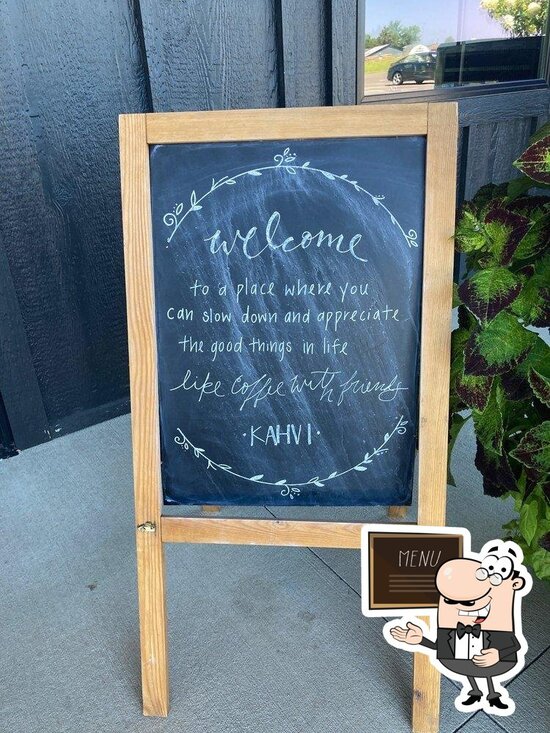 welcome
to a place where you
can slow down and appreciate
the good things in life
like coffee with friends
· KAHVI ·
MENU